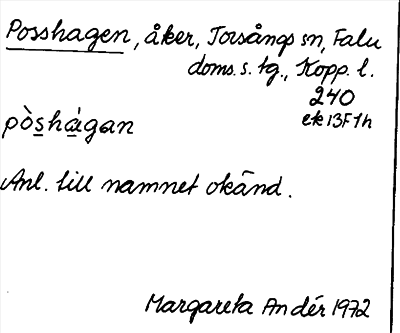 Posshagen, åker, Torsångs sn, Falu
doms. s. tg., Kopp. l.
240
ek 13F1h
pòshàgan
Anl. till namnet okänd.
Margareta Andér 1972